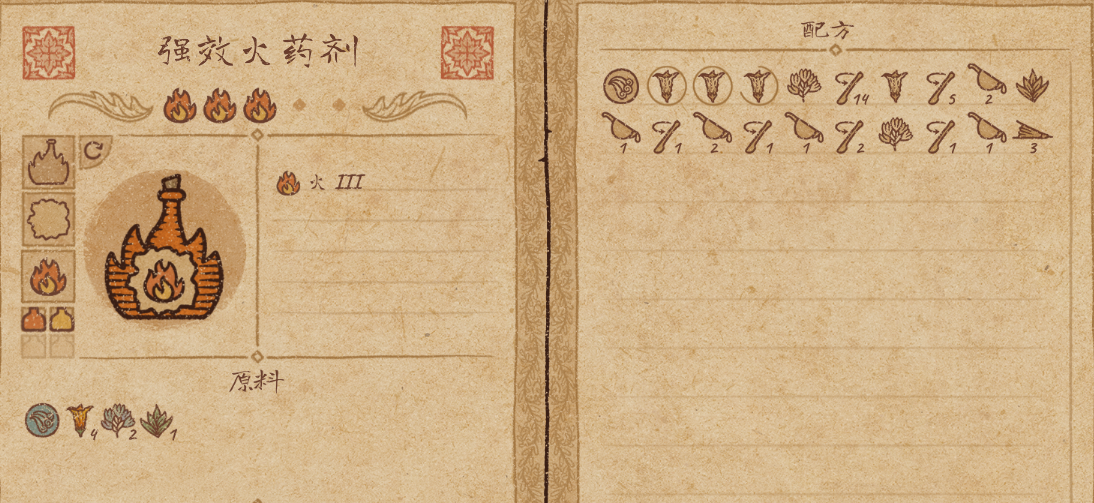 强效火药剂
火 III
原料
4 2 1
配方
14 5 2
1 1 2 1 1 2 1 1 3